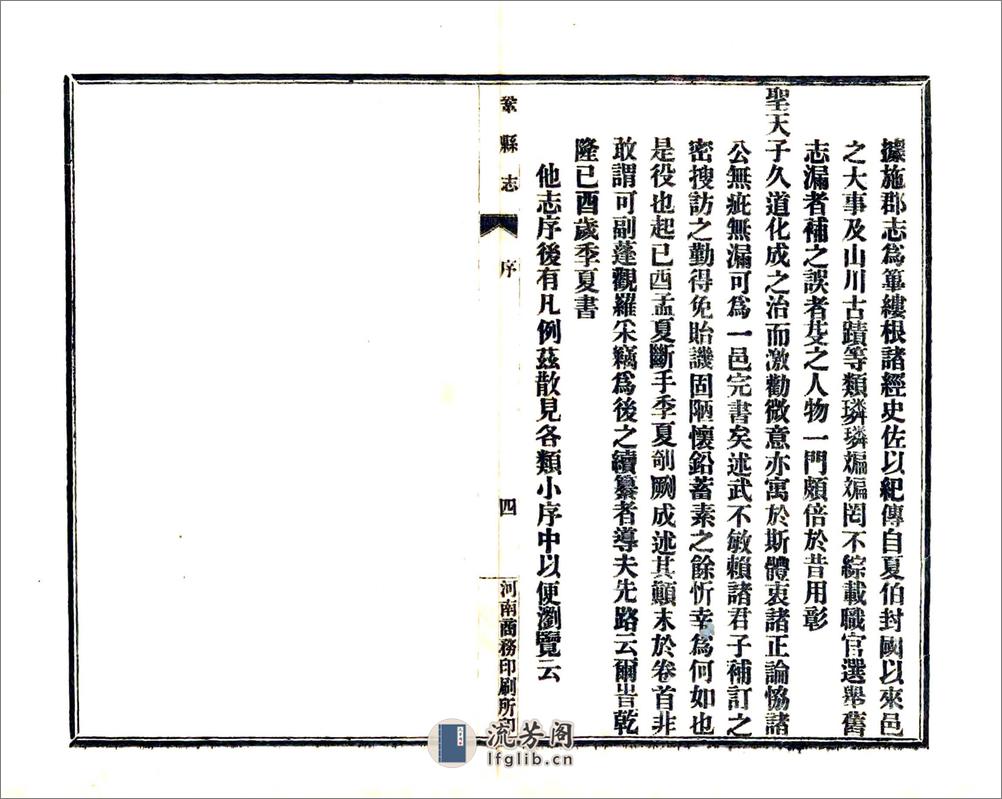 據施郡志爲篳縷根諸經史佐以紀傳自夏伯封國以來邑
之大事及山川古蹟等類璘璘煸煸罔不綜載職官選舉舊
志漏者補之誤者芟之人物一門頗倍於昔用彰
聖天子久道化成之治而激勸微意亦寓於斯體衷諸正論恊諸
公無疵無漏可爲一邑完書矣述武不敏賴諸君子補訂之
密搜訪之勤得免貽譏固陋懷鉛蓄素之餘忻幸爲何如也
是役也起已酉孟夏斷手季夏剞劂成述其顛末於卷首非
敢謂可副蓬觀羅釆竊爲後之續纂者導夫先路云爾旹乾
隆已酉歲季夏書
他志序後有凡例茲散見各類小序中以便瀏覽云
鞏縣志
序
四
河南商務印刷所印
流芳阁
lfglib.cn